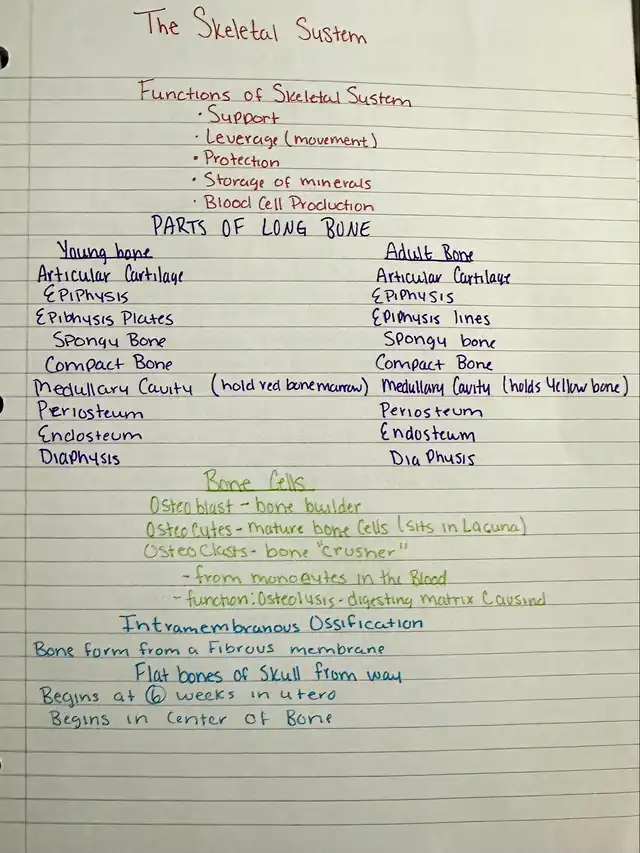 The Skeletal System
Functions of Skeletal System
· Support
· Leverage (movement)
· Protection
· Storage of minerals
· Blood Cell Production
PARTS OF LONG BONE
Young bone Adult Bone
Articular Cartilage Articular Cartilage
EPIPHYSIS EPIPHYSIS
Epibhysis Plates Epiphysis lines
Spongy Bone Spongy bone
Compact Bone Compact Bone
Medullary Cavity (hold red bone marrow) Medullary Cavity (holds Yellow bone)
Periosteum Periosteum
Endosteum Endosteum
Diaphysis Dia Physis
Bone Cells
Osteoblast - bone builder
Osteocytes - mature bone Cells (sits in Lacuna)
Osteoclasts - bone "crusher"
- from monocytes in the Blood
- function: Osteolysis - digesting matrix Causind
Intramembranous Ossification
Bone form from a Fibrous membrane
Flat bones of Skull from way
Begins at 6 weeks in utero
Begins in Center of Bone